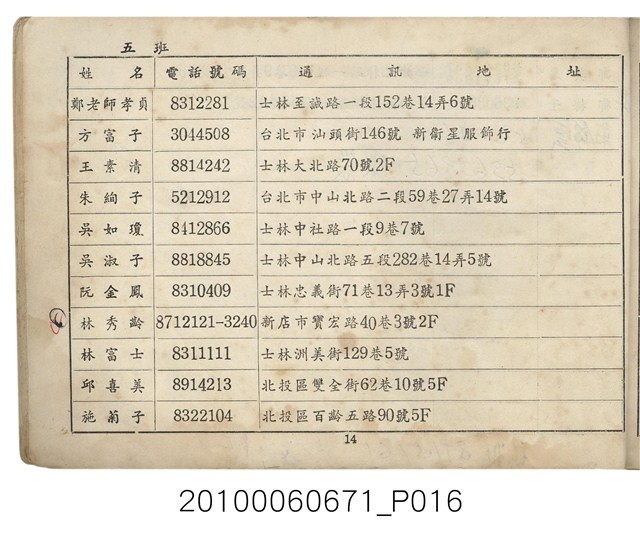 五 班
姓 名 電話號碼 通 訊 地 址
鄭老師孝貞 8312281 士林至誠路一段152巷14弄6號
方富子 3044508 台北市汕頭街146號 新衛星服飾行
王素清 8814242 士林大北路70號2F
朱絢子 5212912 台北市中山北路二段59巷27弄14號
吳如瓊 8412866 士林中社路一段9巷7號
吳淑子 8818845 士林中山北路五段282巷14弄5號
阮金鳳 8310409 士林忠義街71巷13弄3號1F
林秀齡 8712121-3240 新店市寶宏路40巷3號2F
林富士 8311111 士林洲美街129巷5號
邱喜美 8914213 北投區雙全街62巷10號5F
施菊子 8322104 北投區百齡五路90號5F
14
20100060671_P016